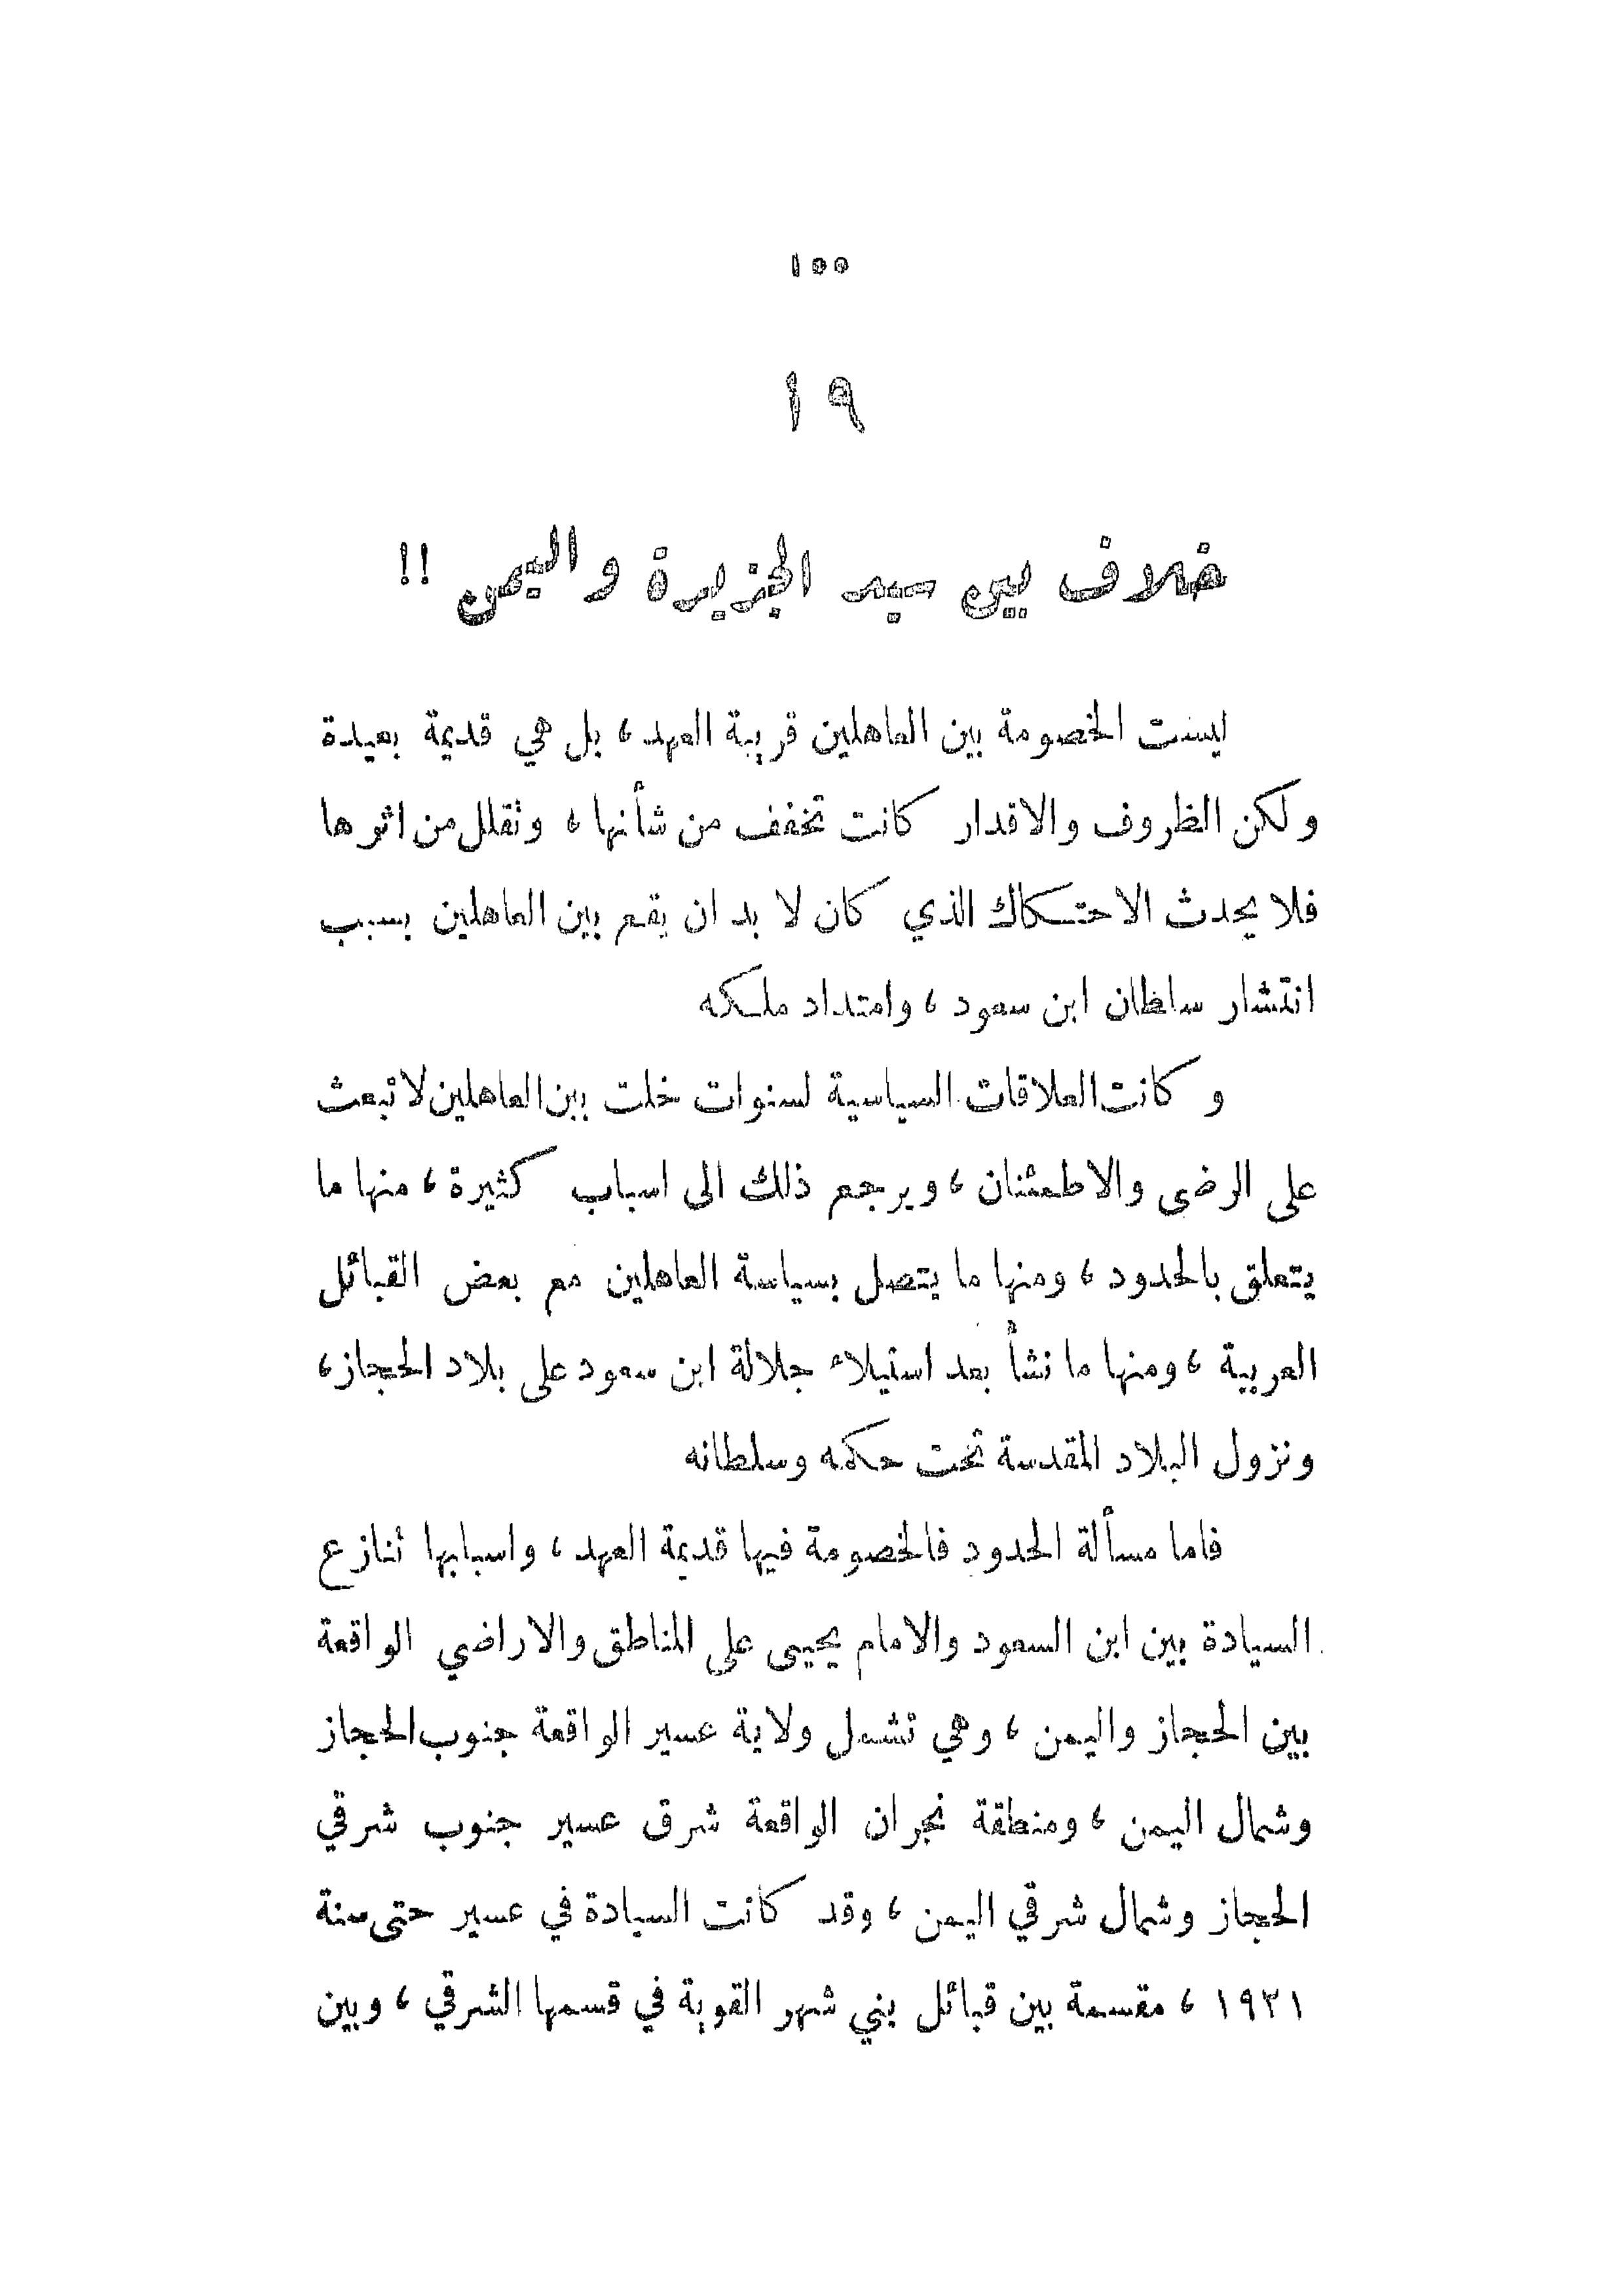 ١٥٥
١٩
خلاف بين سيد الجزيرة واليمن !!
ليست الخصومة بين العاهلين قريبة العهد ، بل هي قديمة بعيدة
ولكن الظروف والاقدار كانت تخفف من شأنها ، وتقلل من اثرها
فلا يحدث الاحتكاك الذي كان لا بد ان يقع بين العاهلين بسبب
انتشار سلطان ابن سعود ، وامتداد ملكه
وكانت العلاقات السياسية لسنوات خلت بين العاهلين لا تبعث
على الرضى والاطمئنان ، ويرجع ذلك الى اسباب كثيرة ، منها ما
يتعلق بالحدود ، ومنها ما يتصل بسياسة العاهلين مع بعض القبائل
العربية ، ومنها ما نشأ بعد استيلاء جلالة ابن سعود على بلاد الحجاز ،
ونزول البلاد المقدسة تحت حكمه وسلطانه
فاما مسألة الحدود فالخصومة فيها قديمة العهد ، واسبابها تنازع
السيادة بين ابن السعود والامام يحيى على المناطق والاراضي الواقعة
بين الحجاز واليمن ، وهي تشمل ولاية عسير الواقعة جنوب الحجاز
وشمال اليمن ، ومنطقة نجران الواقعة شرق عسير جنوب شرقي
الحجاز وشمال شرقي اليمن ، وقد كانت السيادة في عسير حتى سنة
١٩٢١ ، مقسمة بين قبائل بني شهر القوية في قسمها الشرقي ، وبين